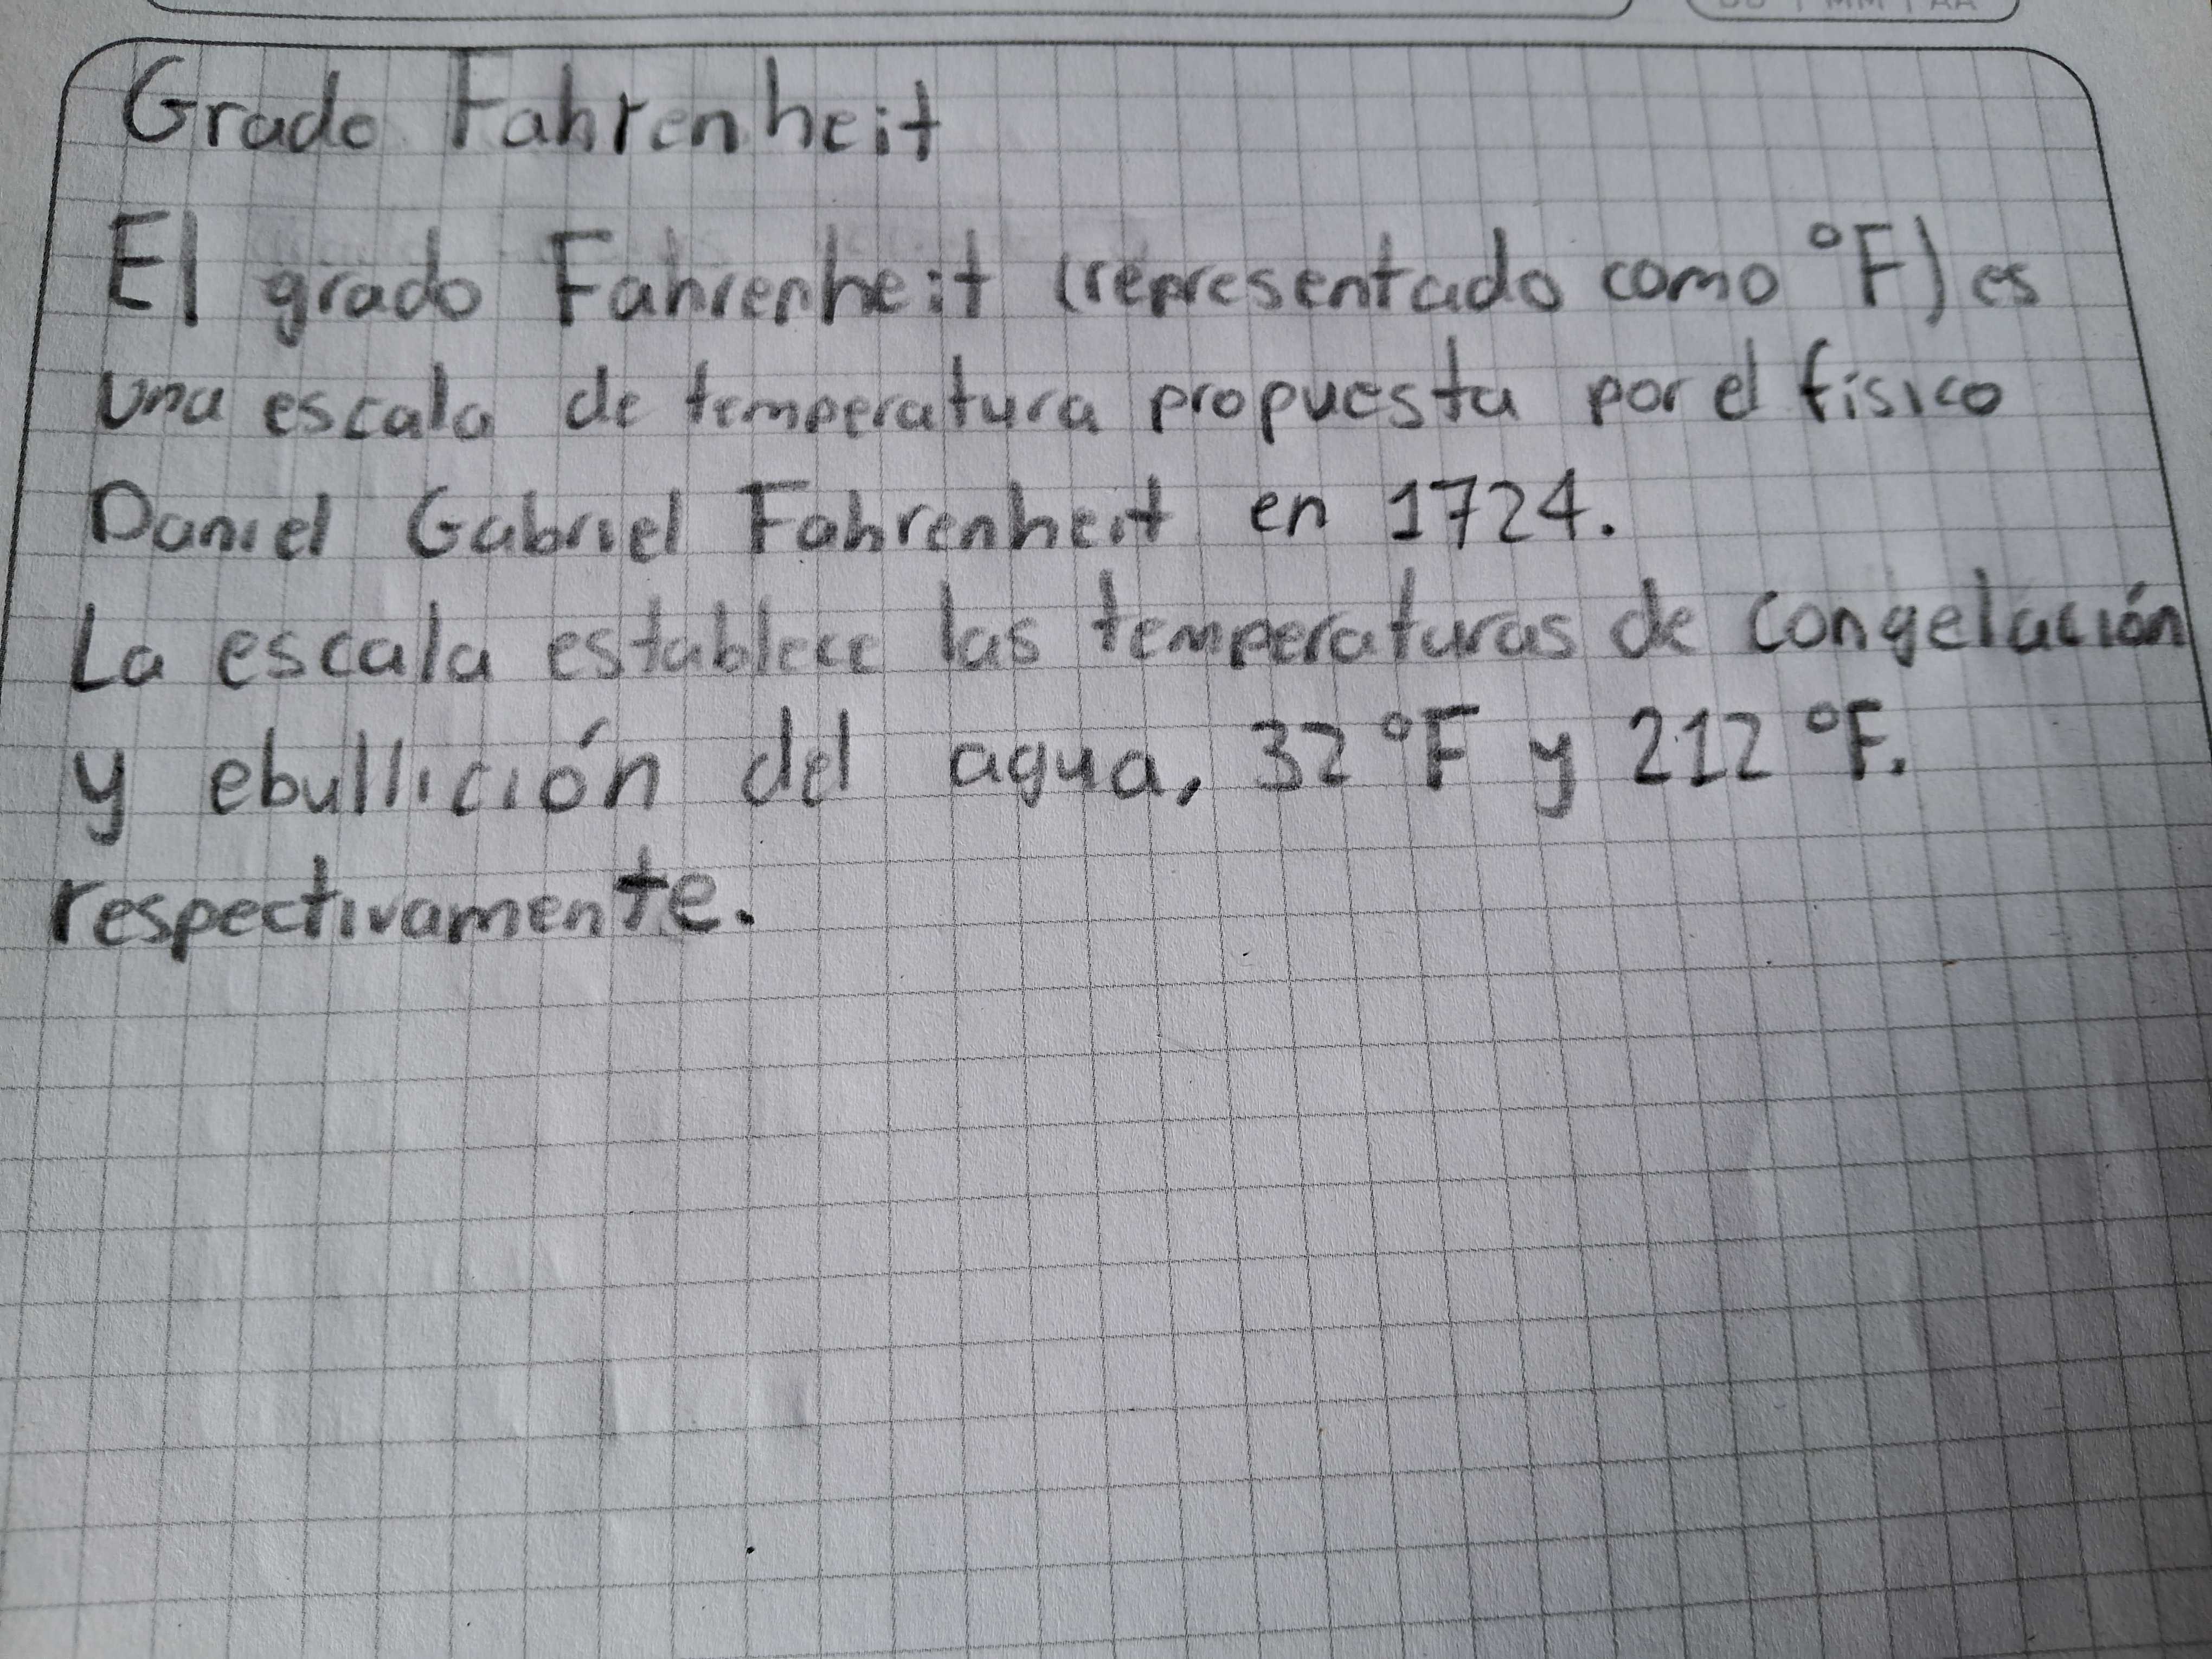 Grado Fahrenheit
El grado Fahrenheit (representado como °F) es
una escala de temperatura propuesta por el físico
Daniel Gabriel Fahrenheit en 1724.
La escala establece las temperaturas de congelación
y ebullición del agua, 32 °F y 212 °F.
respectivamente.